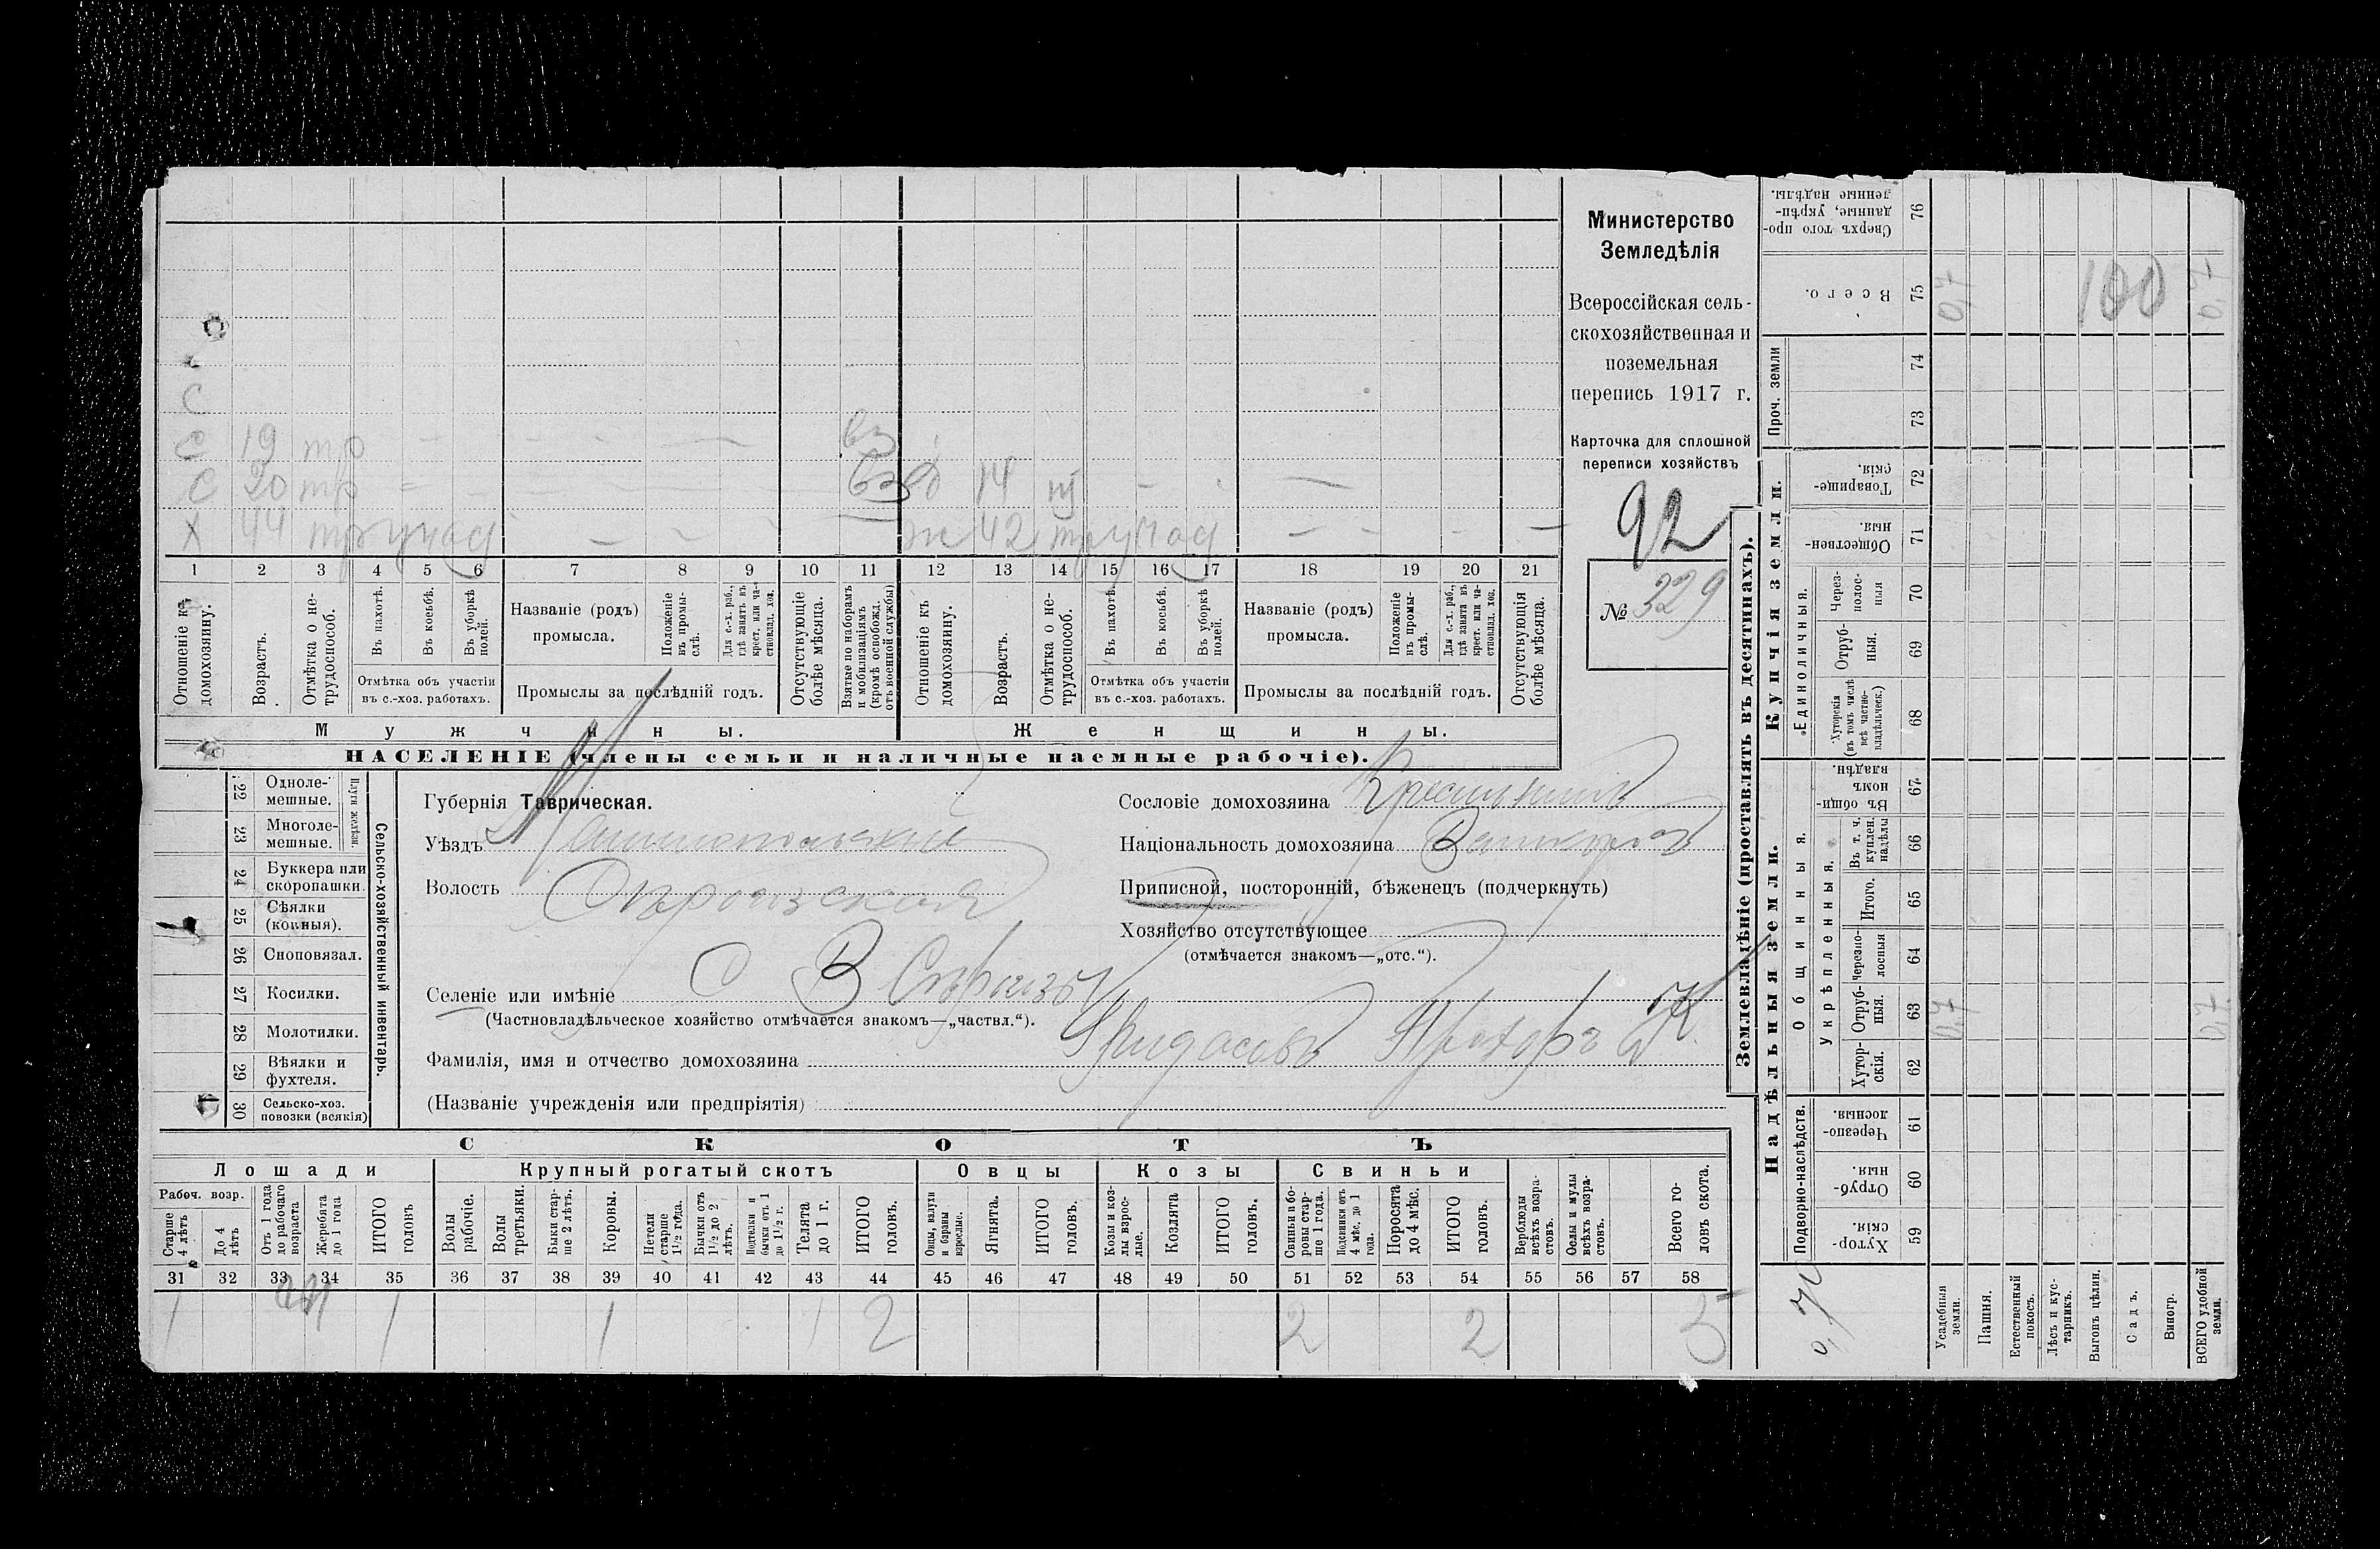 С
С 19 тр вз
С 20 тр вз д 14 пj
Х 44 тр ж 42 тр
1 2 3 4 5 6 7 8 9 10 11 12 13 14 15 16 17 18 19 20 21
Отношеніе къ домохозяину.
Возрастъ.
Отмѣтка о нетрудоспособ.
Въ пахотѣ.
Въ косьбѣ.
Въ уборкѣ полей.
Отмѣтка объ участіи въ с.-хоз. работахъ.
Названіе (родъ) промысла.
Положеніе въ промыслѣ.
Для с.-х. раб., гдѣ занятъ въ крест. или частновлад. хоз.
Промыслы за послѣдній годъ.
Отсутствующіе болѣе мѣсяца.
Взятые по наборамъ и мобилизаціямъ (кромѣ освобожд. отъ военной службы)
Отношеніе къ домохозяину.
Возрастъ.
Отмѣтка о нетрудоспособ.
Въ пахотѣ.
Въ косьбѣ.
Въ уборкѣ полей.
Отмѣтка объ участіи въ с.-хоз. работахъ.
Названіе (родъ) промысла.
Положеніе въ промыслѣ.
Для с.-х. раб., гдѣ занята въ крест. или частновлад. хоз.
Промыслы за послѣдній годъ.
Отсутствующія болѣе мѣсяца.
Мужчины.
Женщины.
НАСЕЛЕНІЕ (члены семьи и наличные наемные рабочіе).
Министерство
Земледѣлія
Всероссійская сель-
скохозяйственная и
поземельная
перепись 1917 г.
Карточка для сплошной
переписи хозяйствъ
92
№ 329
Сельско-хозяйственный инвентарь.
Плуги желѣзн.
22 Одноле-
мешные.
23 Многоле-
мешные.
24 Буккера или
скоропашки.
25 Сѣялки
(конныя).
26 Сноповязал.
27 Косилки.
28 Молотилки.
29 Вѣялки и
фухтеля.
30 Сельско-хоз.
повозки (всякія)
Губернія Таврическая.
Уѣздъ Мелитопольскій
Волость
Селеніе или имѣніе С В
(Частновладѣльческое хозяйство отмѣчается знакомъ—„частвл.“).
Фамилія, имя и отчество домохозяина Прохоръ
(Названіе учрежденія или предпріятія)
Сословіе домохозяина Крестьянинъ
Національность домохозяина
Приписной, посторонній, бѣженецъ (подчеркнуть)
Хозяйство отсутствующее
(отмѣчается знакомъ—„отс.“).
СКОТЪ
Лошади
Крупный рогатый скотъ
Овцы
Козы
Свиньи
Рабоч. возр.
Старше 4 лѣтъ
До 4 лѣтъ
Отъ 1 года до рабочаго возраста
Жеребята до 1 года
ИТОГО головъ
Волы рабочіе.
Волы третьяки.
Быки старше 2 лѣтъ.
Коровы.
Нетели старше 1 1/2 года.
Бычки отъ 1 1/2 до 2 лѣтъ.
Подтелки и бычки отъ 1 до 1 1/2 г.
Телята до 1 г.
ИТОГО головъ.
Овцы, валухи и бараны взрослые.
Ягнята.
ИТОГО головъ.
Козы и козлы взрослые.
Козлята
ИТОГО головъ.
Свиньи и боровы старше 1 года.
Подсвинки отъ 4 мѣс. до 1 года.
Поросята до 4 мѣс.
ИТОГО головъ.
Верблюды всѣхъ возрастовъ.
Ослы и мулы всѣхъ возрастовъ.
Всего головъ скота.
31 32 33 34 35 36 37 38 39 40 41 42 43 44 45 46 47 48 49 50 51 52 53 54 55 56 57 58
1 1 1 1 2 2 2 5
Землевладѣніе (проставлять въ десятинахъ).
Надѣльныя земли.
Купчія земли.
Проч. земли
Подворно-наслѣдств.
Общинныя.
Укрѣпленныя.
Единоличныя.
Хуторскія. 59
Отрубныя. 60
Черезполосныя. 61
Хуторскія. 62
Отрубныя. 63
Черезполосныя 64
Итого. 65
Въ т. ч. куплен. надѣлы 66
Въ общинномъ владѣн. 67
Хуторскія (въ томъ числѣ всѣ частновладѣльческ.) 68
Отрубныя. 69
Черезполосныя 70
Общественныя. 71
Товарищескія. 72
73
74
Всего. 75
Сверхъ того проданные, укрѣпленные надѣлы. 76
Усадебныя земли. 0,7 0,7
Пашня.
Естественный покосъ.
Лѣсъ и кустарникъ.
Выгонъ цѣлин.
Садъ.
Виногр.
ВСЕГО удобной земли. 0,7 0,7
100